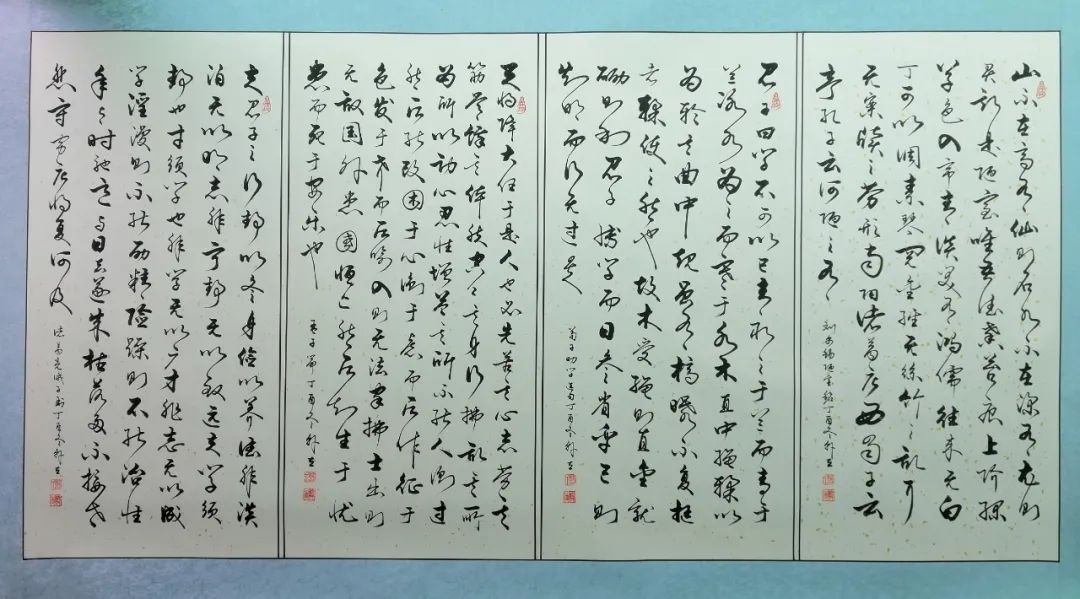 山不在高有仙则名水不在深有龙则
灵斯是陋室唯吾德馨苔痕上阶绿
草色入帘青谈笑有鸿儒往来无白
丁可以调素琴阅金经无丝竹之乱耳
无案牍之劳形南阳诸葛庐西蜀子云
亭孔子云何陋之有
刘禹锡陋室铭丁酉冬
君子曰学不可以已青取之于蓝而青于
蓝冰水为之而寒于水木直中绳輮以
为轮其曲中规虽有槁暴不复挺
者輮使之然也故木受绳则直金就
砺则利君子博学而日参省乎己则
知明而行无过矣
荀子劝学篇句丁酉冬
天将降大任于是人也必先苦其心志劳其
筋骨饿其体肤空乏其身行拂乱其所
为所以动心忍性增益其所不能人恒过
然后能改困于心衡于虑而后作征于
色发于声而后喻入则无法家拂士出则
无敌国外患國恒亡然后知生于忧
患而死于安乐也
孟子篇丁酉冬
夫君子之行静以修身俭以养德非淡
泊无以明志非宁静无以致远夫学须
静也才须学也非学无以广才非志无以成
学淫漫则不能励精险躁则不能治性
年与时驰意与日去遂成枯落多不接世
悲守穷庐将复何及
诸葛亮诫子书丁酉冬